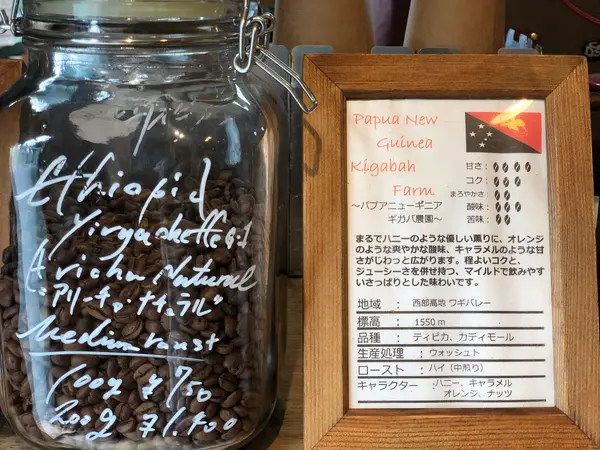 Ethiopia
Yirgacheffe G1
Aricha Natural
"アリーチャ ナチュラル"
Medium roast
100g ¥750
200g ¥1.400
Papua New
Guinea
Kigabah
Farm
～パプアニューギニア
ギガバ農園～
甘さ：
コク：
まろやかさ：
酸味：
苦味：
まるでハニーのような優しい薫りに、オレンジ
のような爽やかな酸味、キャラメルのような甘
さがじわっと広がります。程よいコクと、
ジューシーさを併せ持つ、マイルドで飲みやす
いさっぱりとした味わいです。
地域 ： 西部高地 ワギバレー
標高 ： 1550ｍ
品種 ： ティピカ、カティモール
生産処理 ： ウォッシュト
ロースト ： ハイ（中煎り）
キャラクター ：ハニー、キャラメル
オレンジ、ナッツ